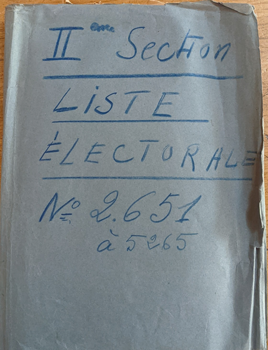 II ème Section
LISTE
ÉLECTORALE
Nº 2.651
à 5265